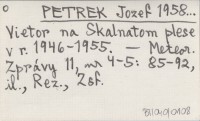 PETREK Jozef 1958...
Vietor na Skalnatom plese
v r. 1946-1955. — Meteor.
Zprávy 11, nr 4-5: 85-92,
il., Rez., Zsf.